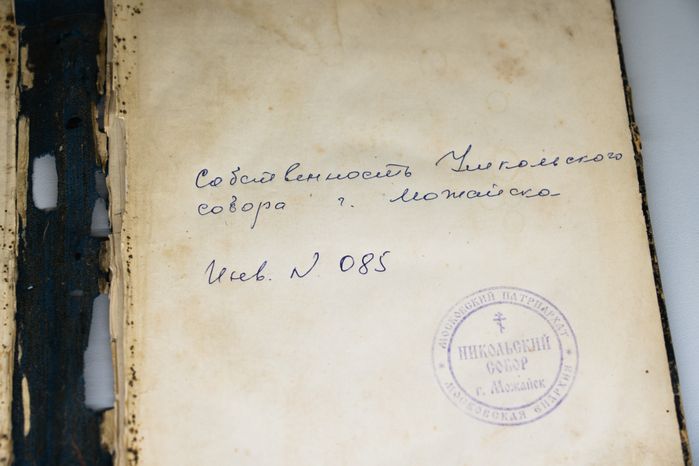 Собственность Никольского
собора г. Можайска
Инв. N 085
МОСКОВСКИЙ ПАТРИАРХАТ
НИКОЛЬСКИЙ
СОБОР
г. Можайск
МОСКОВСКАЯ ЕПАРХИЯ